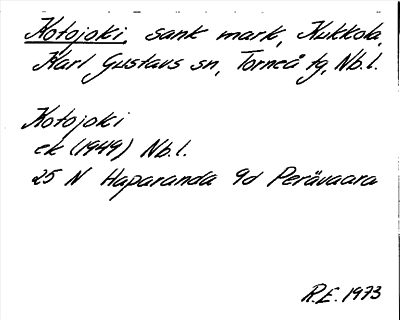 Kotojoki, sank mark, Kukkola,
Karl Gustavs sn, Torneå tg, Nb.l.
Kotojoki
ek (1949) Nb.l.
25 N Haparanda 9d Perävaara
R.E. 1973